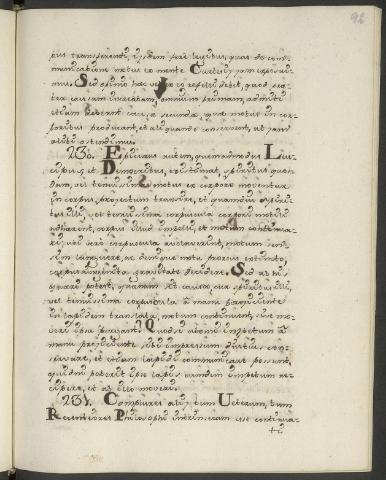 92
pus transeundi, ijsdem fere legibus, quas de com-
municatione motus ex mente Cartesij jam exposui-
mus. Sed opinio haec vel ex eo repelli debet, quod prae-
ter causam universalem, omnium primam, admitti
etiam debeant causae secundae, quae motus in cor-
poribus producant, et aliquando conservent, ut jam
alibi ostendimus.
230. Epicurus autem, quemadmodum Leu-
cippus, et Democritus, existimat, spiritus quos-
dam, vel tenuissima motus ex corpore moventis
in corpus projectum transire, et quamdiu spiri-
tus illi, vel tenuissima corpuscula corpori mobili
adhaerent, corpus illud impelli, et motum continua-
re; ubi vero corpuscula avolaverint, motum sen-
sim languere, ac denique motu prorsus extincto,
corpus ingenita gravitate decidere. Sed ab his
quaeri potest, quanam ex causa, cum spiritus illi,
vel tenuissima corpuscula a manu projiciente
in lapidem translata, motum continuent, sine mo-
vere ipsa pariant? Quod si vicimo impetum a
manu projiciente sibi impressum diutius con-
servare, et etiam lapidi communicare possunt,
quidni poterit ipse lapis eumdem impetum re-
cipere, et ab illo moveri.
231. Complures alij tum Veterum, tum
Recentiores Philosophi intrinsecam esse continua-
ti-